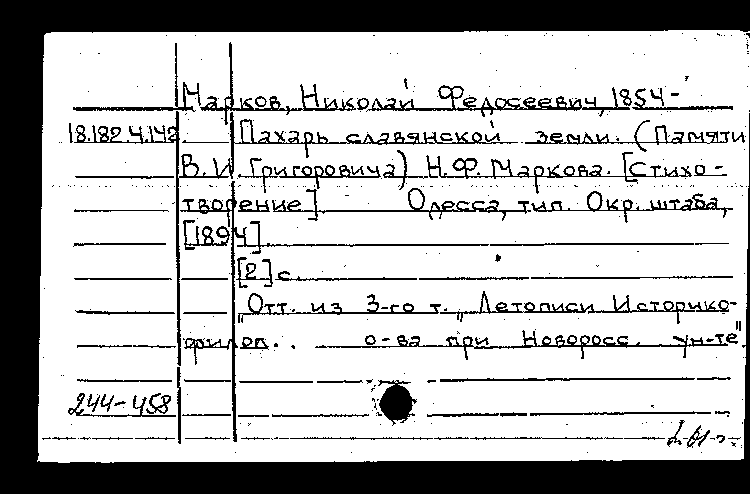 Марков, Николай Федосеевич, 1854-
18.182.4.142. Пахарь славянской земли. (Памяти
В. И. Григоровича) Н. Ф. Маркова. [Стихо-
творение]. Одесса, тип. Окр. штаба,
[1894].
[2] с.
"Отт. из 3-го т. „Летописи Историко-
филол. . о-ва при Новоросс. ун-те"
244-458